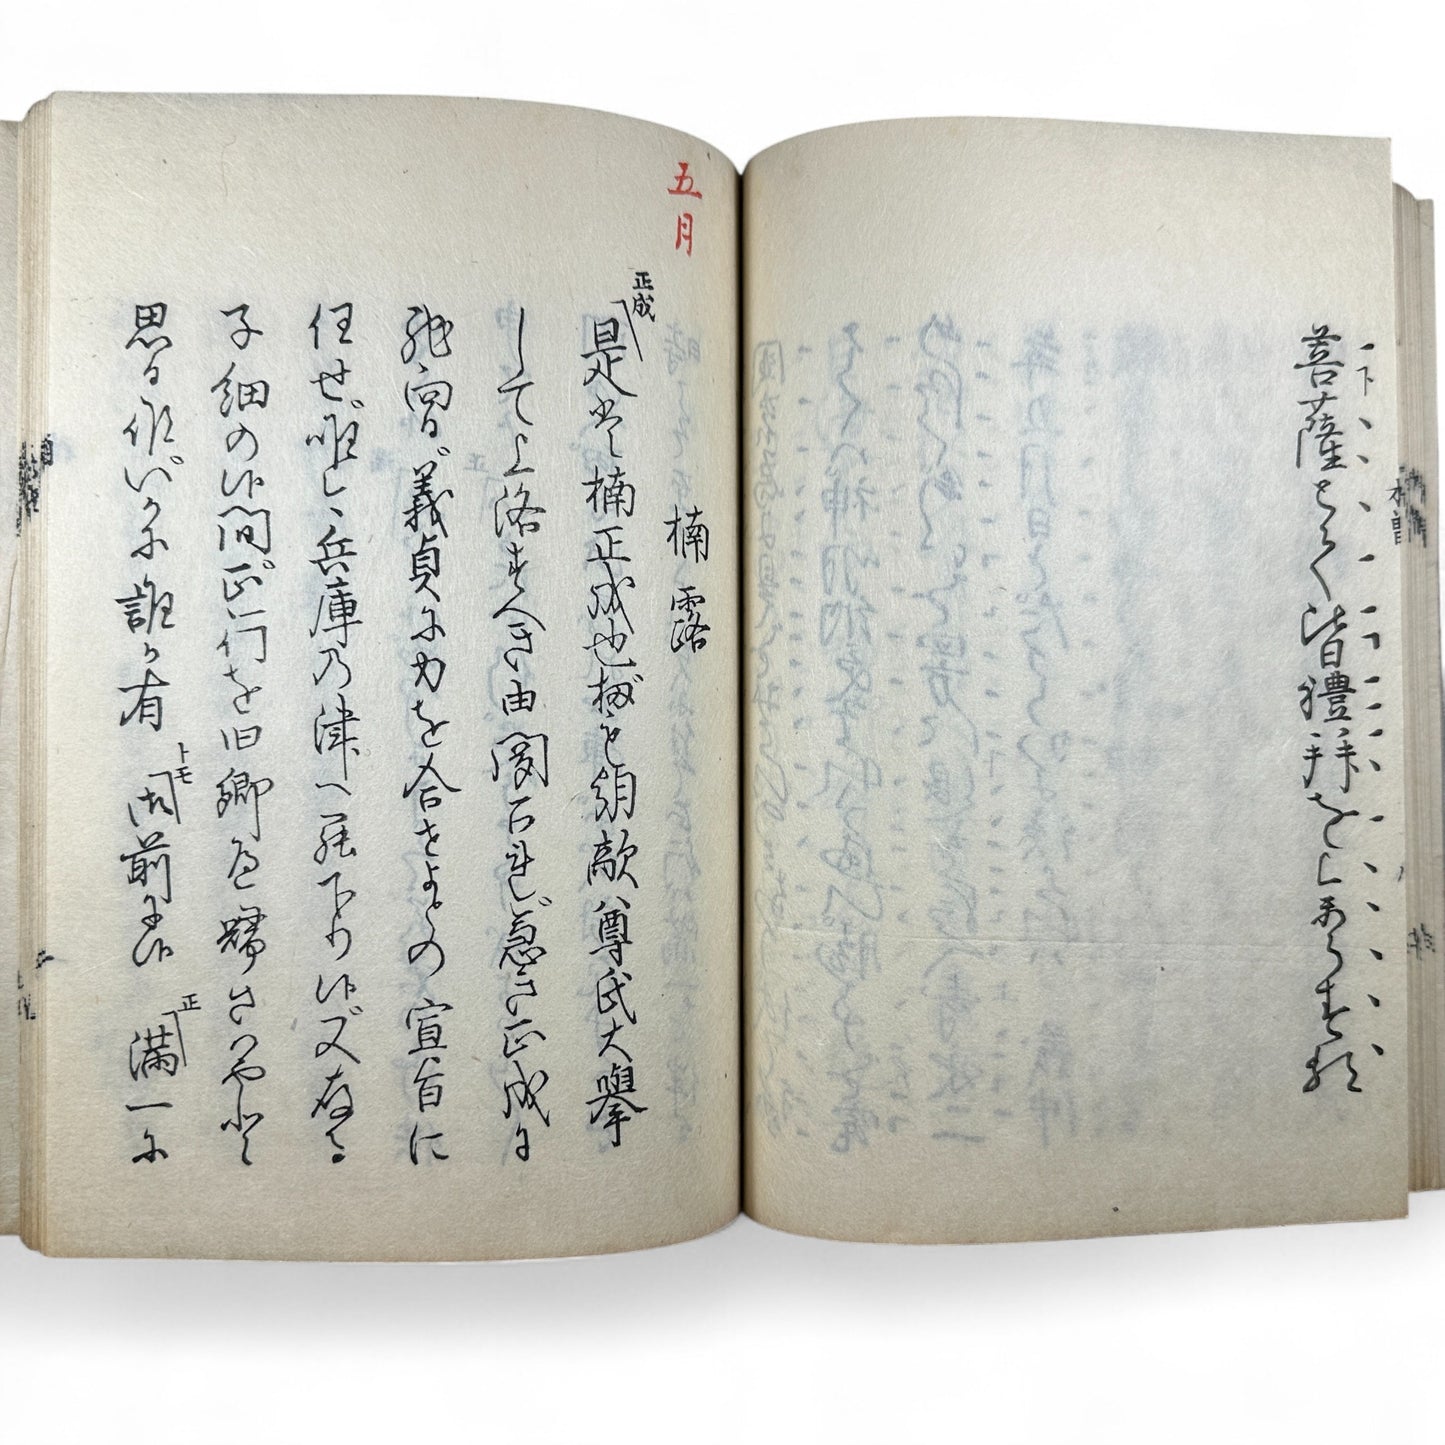 菩薩もろ〳〵皆禮拝をし奉らする
五月
楠露
正成
是は楠正成也扨も朝敵尊氏大擧
して上洛すへき由聞召れ急き正成に
馳向ひ義貞に力を合せよとの宣旨に
任せ唯今兵庫乃津へ罷下り候又存る
子細の候間正行を旧郷へ帰さはやと
思ひ候いかに誰か有
トモ
御前に候
正
満一に